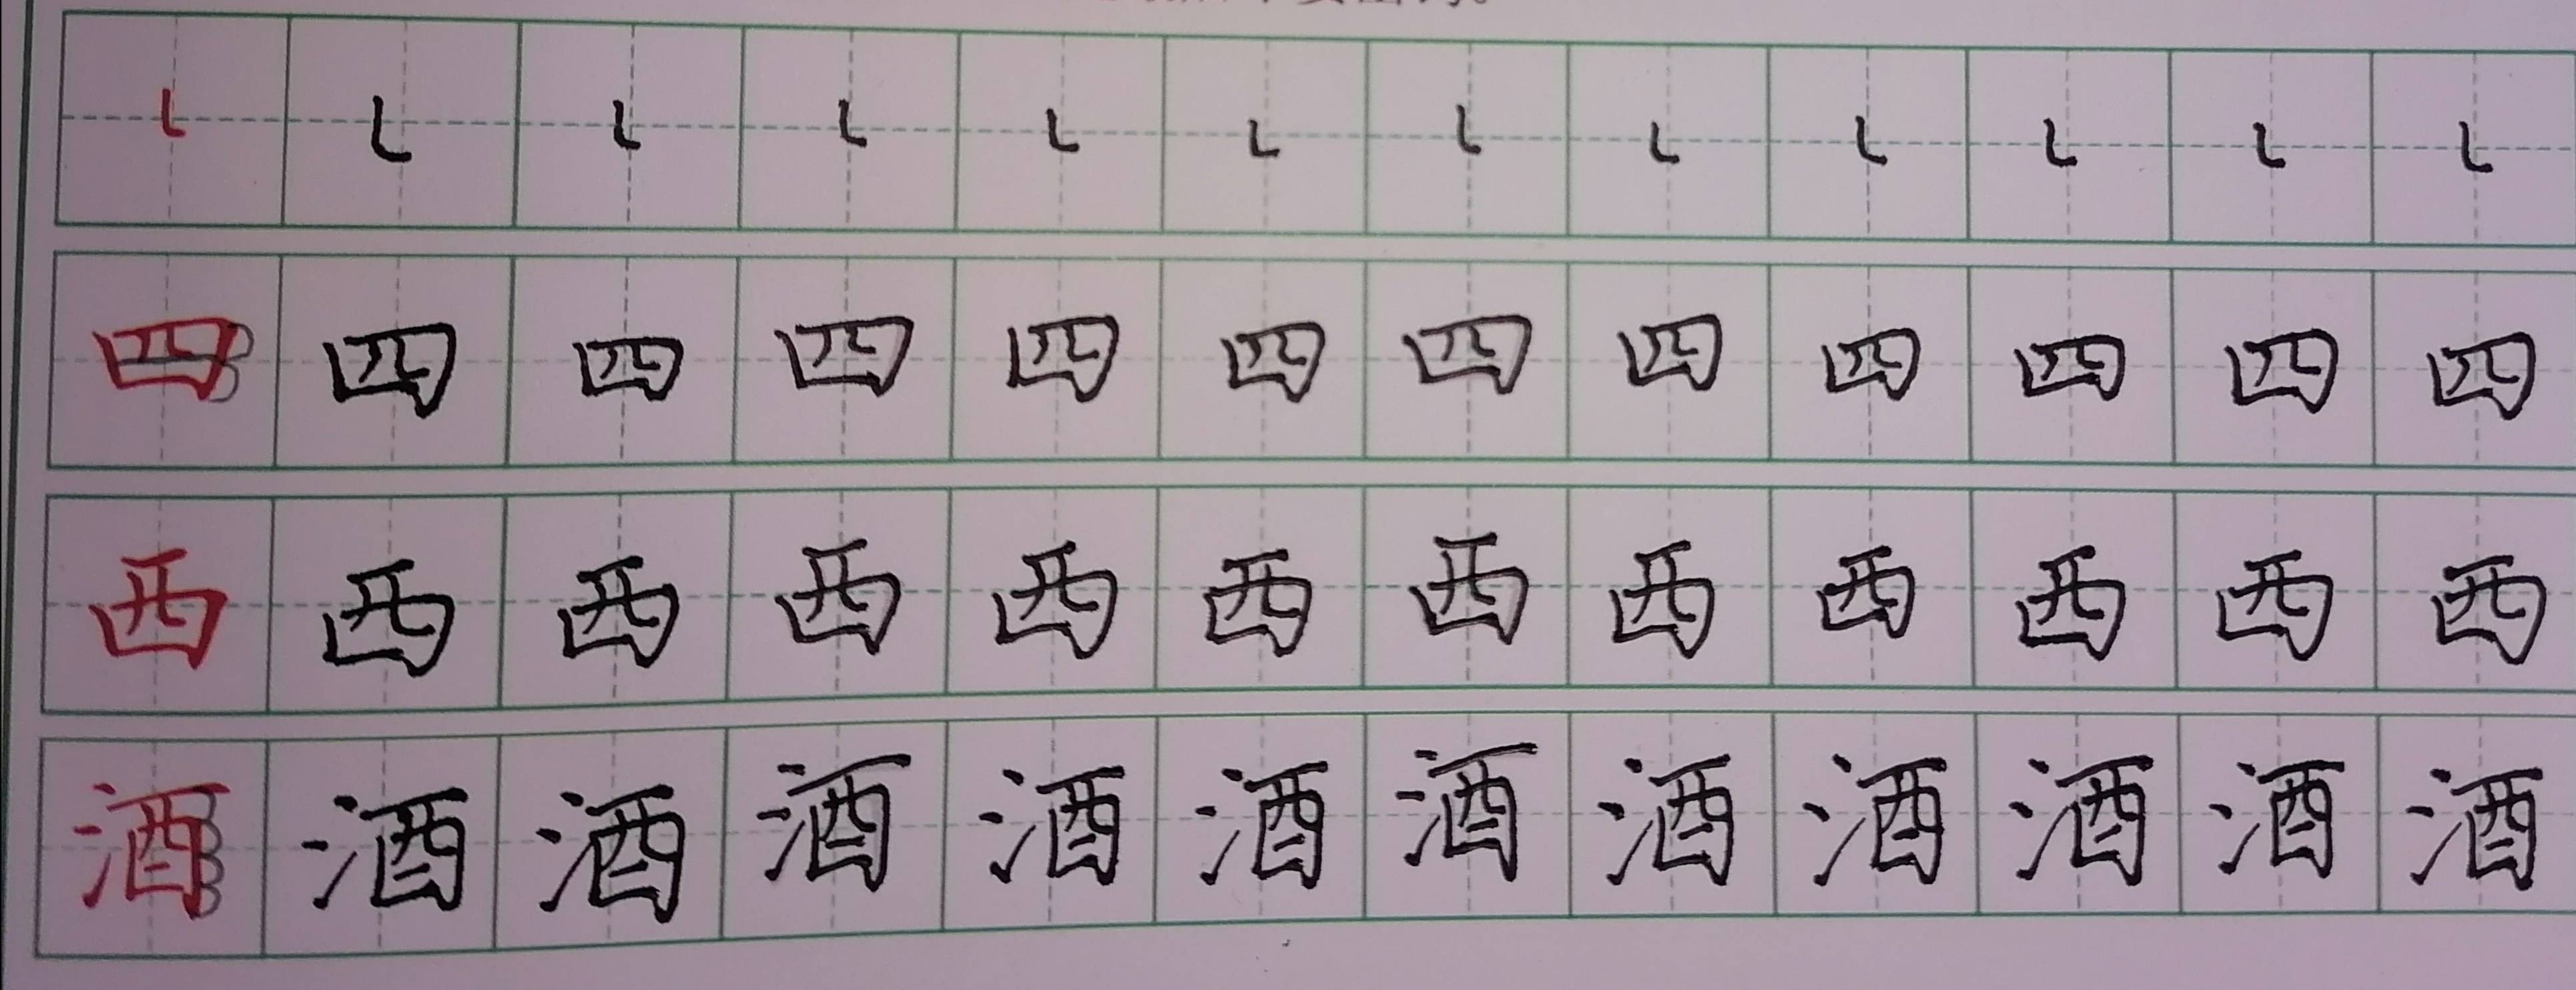 ㇄ ㇄ ㇄ ㇄ ㇄ ㇄ ㇄ ㇄ ㇄ ㇄ ㇄ ㇄
四 四 四 四 四 四 四 四 四 四 四 四
西 西 西 西 西 西 西 西 西 西 西 西
酒 酒 酒 酒 酒 酒 酒 酒 酒 酒 酒 酒